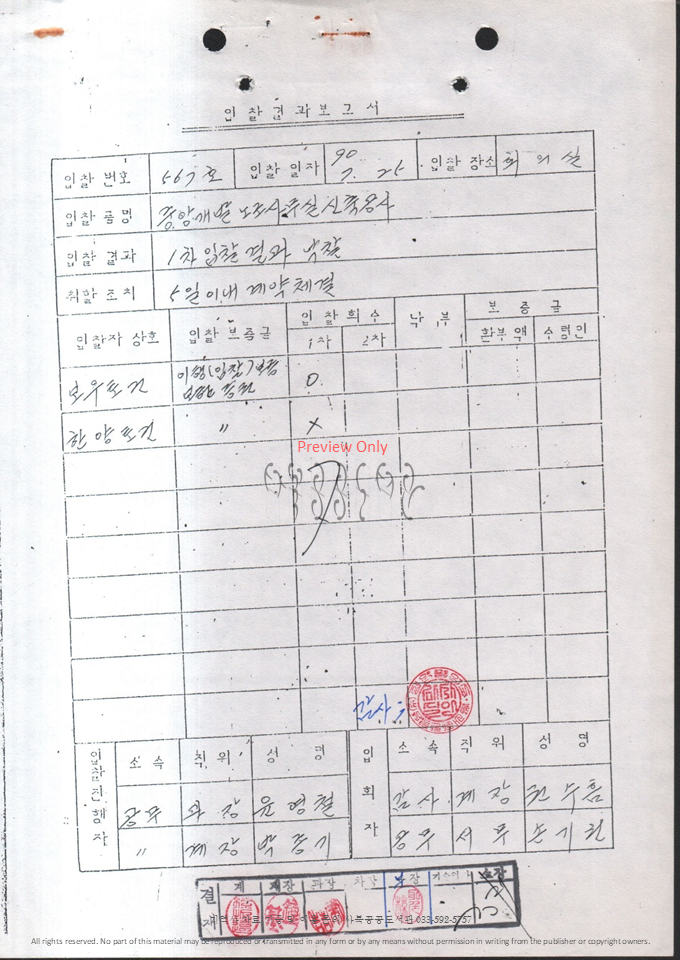 입찰결과보고서
입찰 번호 567호 입찰 일자 90 7. 25 입찰 장소 회의실
입찰 품명 중앙개발 노조사무실신축공사
입찰 결과 1차 입찰결과 낙찰
취할 조치 5일이내 계약체결
입찰자 상호 입찰 보증금 입찰회수 낙부 보증금
1차 2차 환부액 수령인
보우토건 이행(입찰)보증
보험증권 O
한양토건 〃 X
Preview Only
감사
입찰진행자 소속 직위 성명 입회자 소속 직위 성명
과장 윤영철 감사 계장
〃 계장 박종기 서무 손기헌
결재 계 계장 과장 차장 부장 소장
033-592-5757
All rights reserved. No part of this material may be reproduced or transmitted in any form or by any means without permission in writing from the publisher or copyright owners.